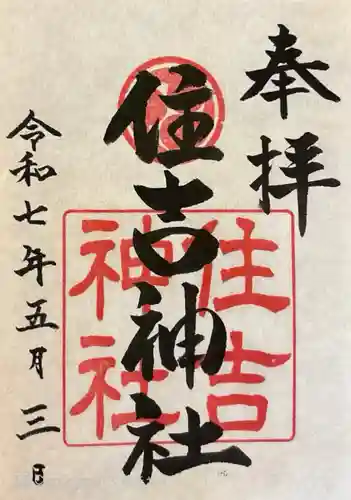 奉拝
住吉神社
住吉
神社
令和七年五月三日